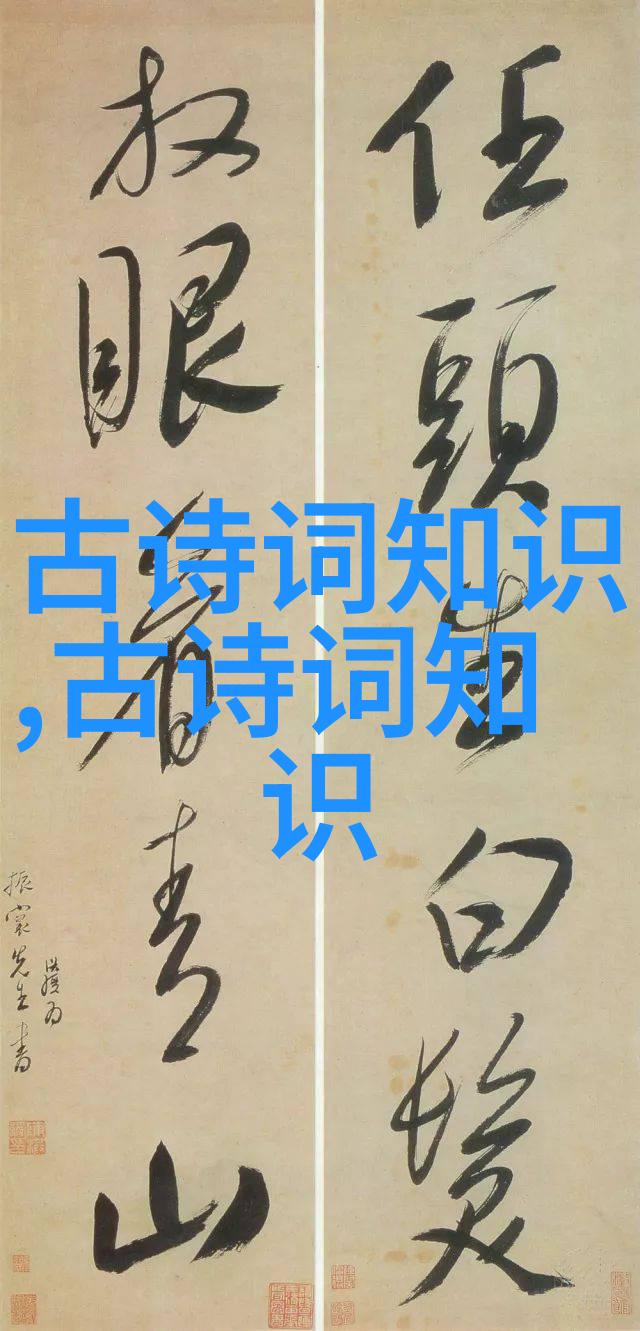 古诗词知识
,古诗词知
识
任頭生白髮
放眼看青山
先生書